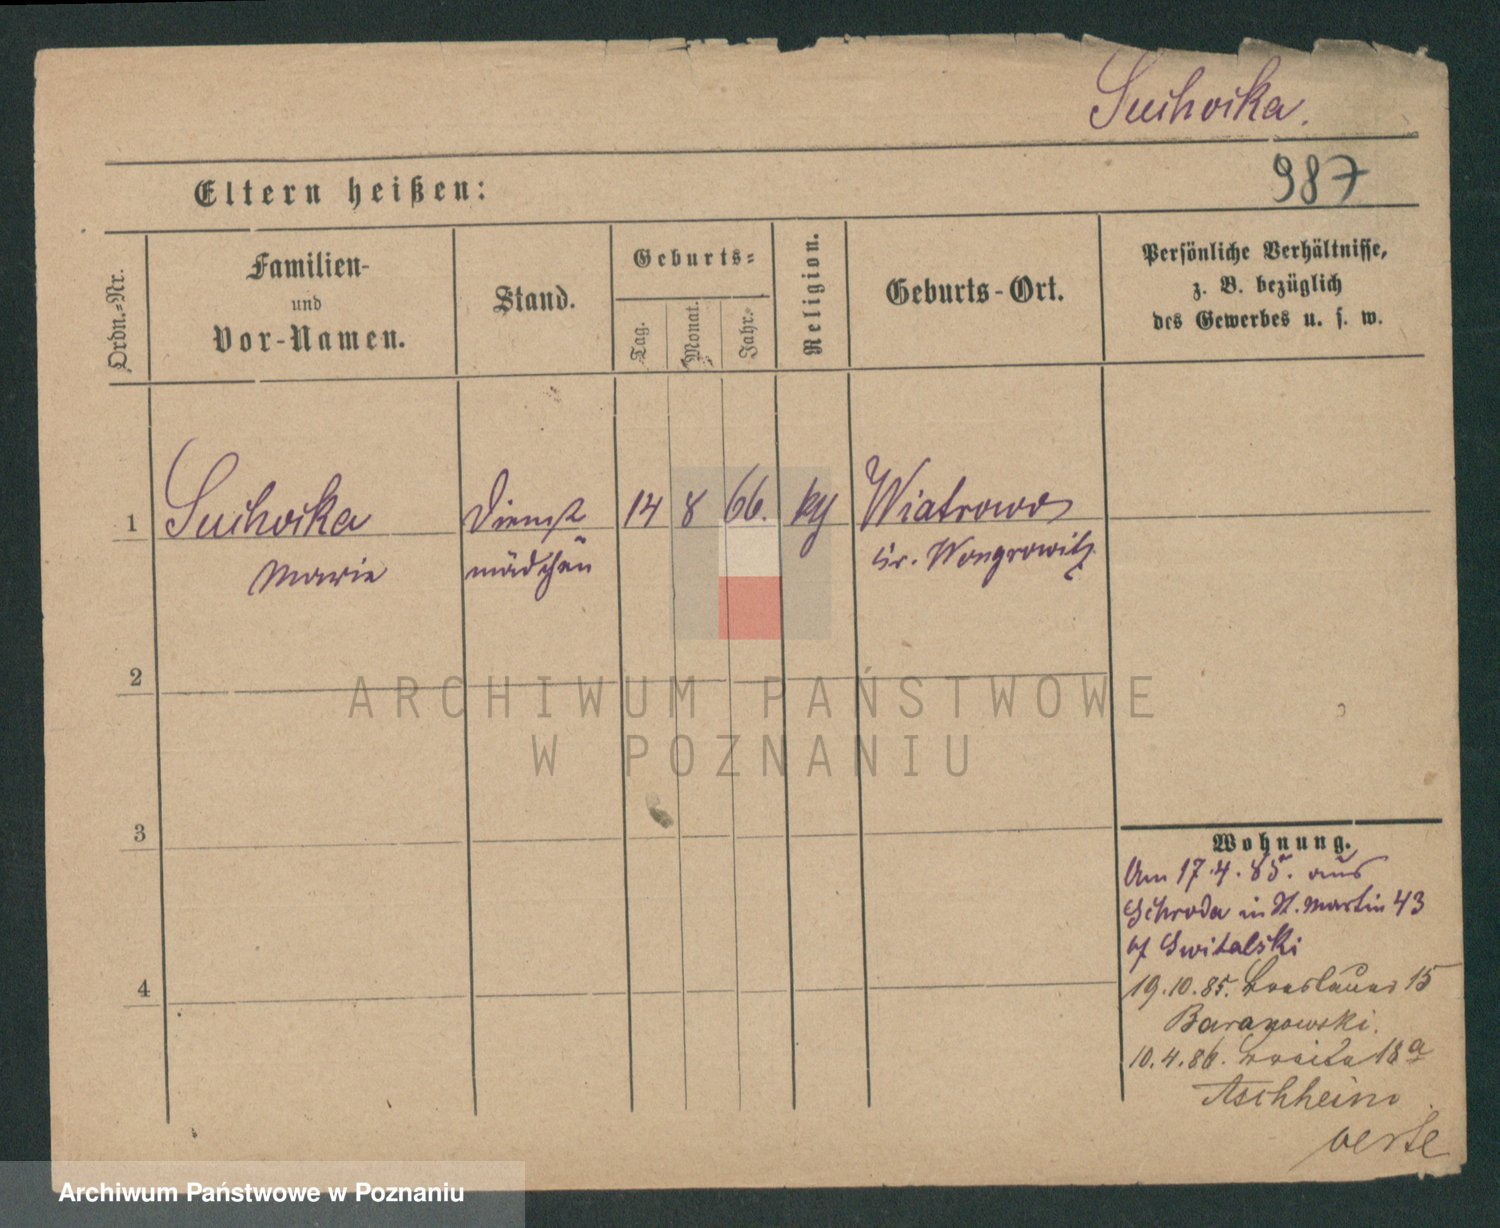 Suchocka.
987
Eltern heißen:
Ordn.-Nr.
Familien-
und
Vor-Namen.
Stand.
Geburts-
Tag.
Monat.
Jahr.
Religion.
Geburts-Ort.
Persönliche Verhältnisse,
z. B. bezüglich
des Gewerbes u. s. w.
1
Suchocka
Marie
Dienst
mädchen
14
8
66.
Wiatrowo
Kr. Wongrowitz
2
ARCHIWUM PAŃSTWOWE
W POZNANIU
3
4
Wohnung.
Am 17.4.85. aus
Schroda in St. Martin 43
bf Switalski
19.10.85. Breslauer 15
Baranowski.
10.4.86. Breite 18a
Aschheim
Archiwum Państwowe w Poznaniu